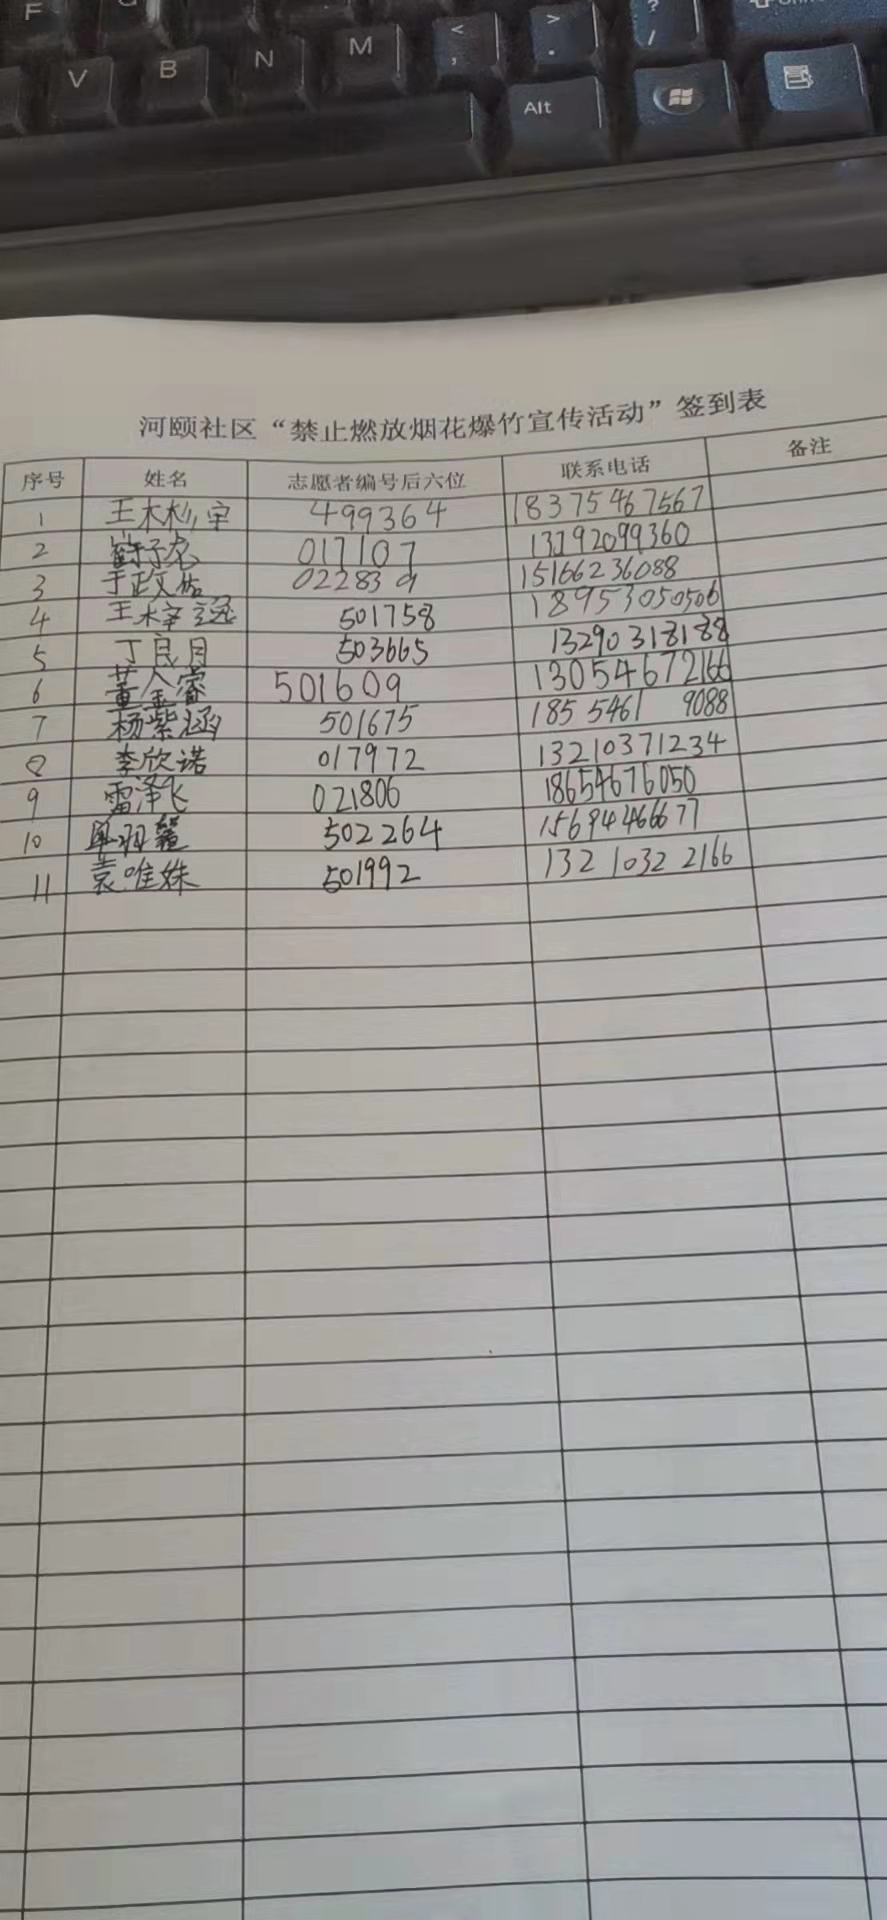 F
V B N M < , > . ? /
Alt
河颐社区“禁止燃放烟花爆竹宣传活动”签到表
序号 姓名 志愿者编号后六位 联系电话 备注
1 王木杉宇 499364 18375467567
2 017107 13192099360
3 于政佑 022839 15166236088
4 王梓逸 501758 18953050506
5 丁良月 503665 13290318188
6 董金睿 501609 13054672166
7 杨紫涵 501675 185 5461 9088
8 李欣诺 017972 13210371234
9 雷泽飞 021806 18654676050
10 502264 15694466677
11 袁唯姝 501992 132 1032 2166